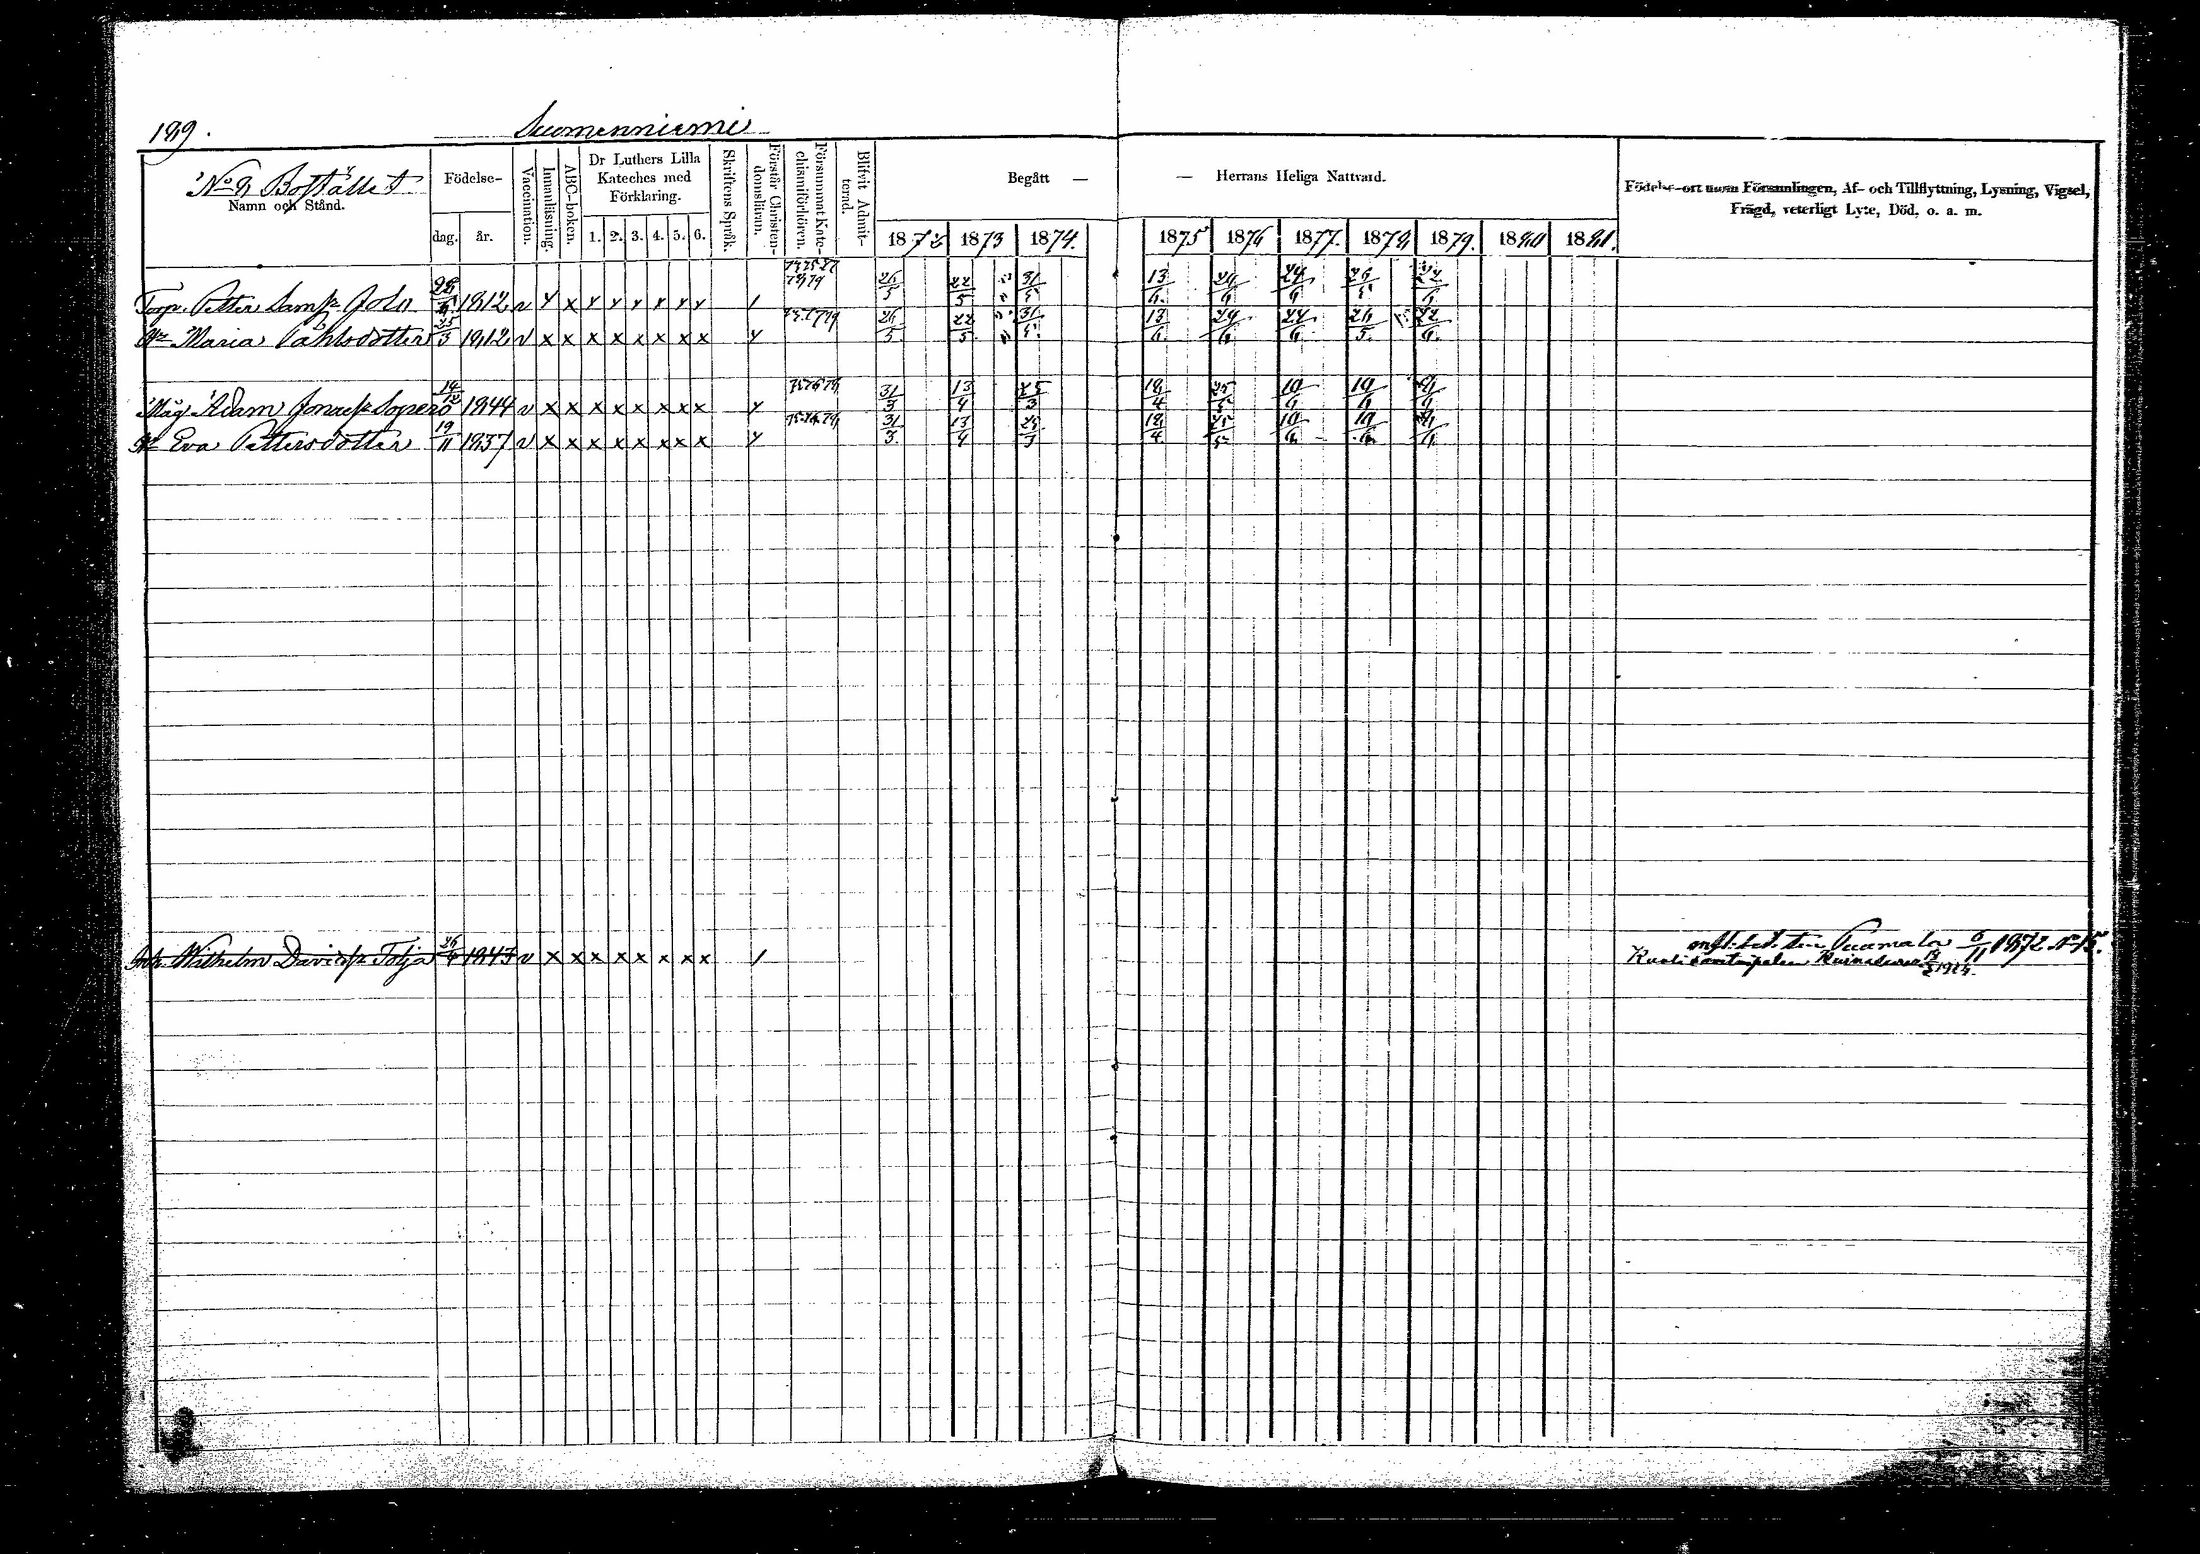 189. Suomenniemi
No 8 Bostället
Namn och Stånd.
Födelse-
dag. år.
Vaccination.
Innanläsning.
ABC-boken.
Dr Luthers Lilla Kateches med Förklaring.
1. 2. 3. 4. 5. 6.
Skriftens Språk.
Förstår Christendomsläran.
Försummat Katechismiförhören.
Blifvit Admitterad.
Begått — — Herrans Heliga Nattvard.
1872 1873 1874. 1875 1876 1877. 1878 1879. 1880 1881.
Födelse-ort utom Församlingen, Af- och Tillflyttning, Lysning, Vigsel,
Frägd, veterligt Lyte, Död, o. a. m.
Torp. Petter 1812 v 26/5 22/5 31/5 13/6 24/6 24/6 26/5 22/6
Maria Påhlsdotter 25/3 1812 v x x x x x x x x 26/5 22/5 31/5 13/6 24/6 24/6 26/5 22/6
Måg Adam 14/12 1844 v x x x x x x x x 31/3 13/4 25/3 18/4 25/5 10/6 10/6
Eva Pettersdotter 19/11 1837 v x x x x x x x x 31/3 13/4 25/3 18/4 25/5 10/6 10/6
Wilhelm Davidsr Tolja 26/4 1843 v x x x x x x x x 1 Puumala 6/11 1872 No 15.